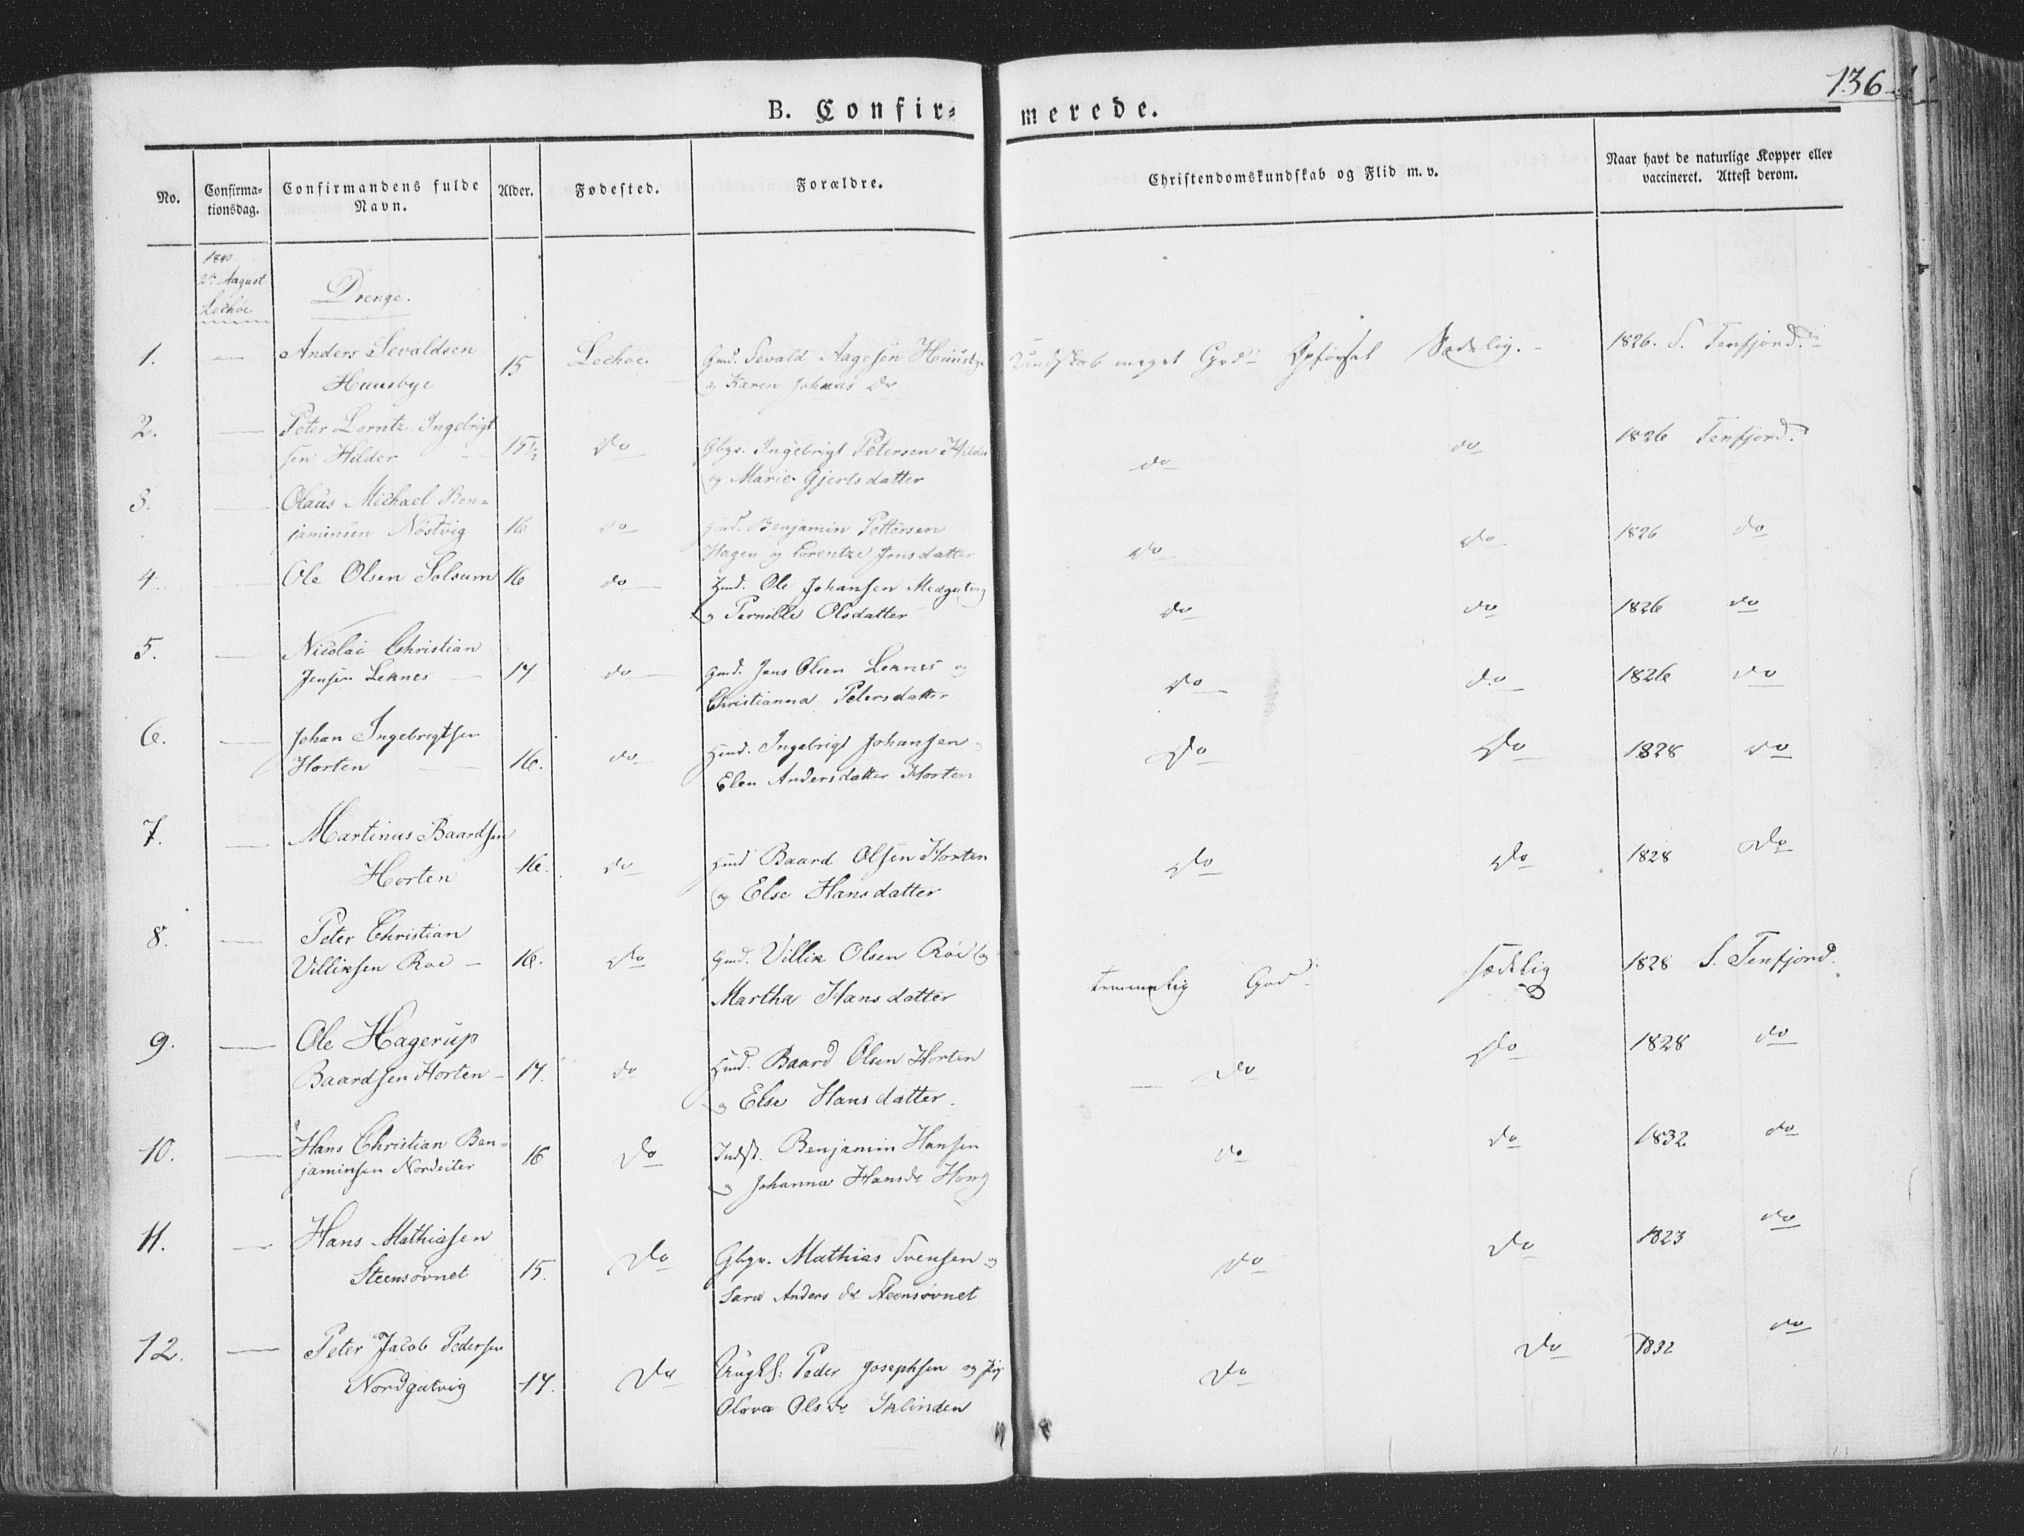 136
B. Confir- merede.
No.
Confirma-
tionsdag.
Confirmandens fulde
Navn.
Alder.
Fødested.
Forældre.
Christendomskundskab og Flid m. v.
Naar havt de naturlige Kopper eller
vaccineret. Attest derom.
1840
August
Lechøe
Drenge.
1. — Anders Sevaldsen
Huusbye 15 Lechøe Gmd. Sevald Aagesen Huusbye
og Karen Johnas Dr Kundskab meget God Opførsel Sædelig. 1826. S. Tenfjord.
2. — Peter Lorntz Ingebrigt
sen Hilder 15½ do Gbgr. Ingebrigt Petersen Hilder
og Marie Gjertsdatter do do 1826 Tenfjord.
3. — Olaus Michael Ben-
jaminsen Nøstvig 16 do Huusd. Benjamin Pettersen
Hagen og Lorentze Jonsdatter do do 1826 do
4. — Ole Olsen Solsum 16 do Huusd. Ole Johansen Medgutvig
og Pernille Olsdatter do do 1826 do
5. — Nicolai Christian
Jensen Leknes — 17 do Gmd. Jens Olsen Leknes og
Christianna Petersdatter do do 1826 do
6. — Johan Ingebrigtsen
Horten — 16. do Huusd. Ingebrigt Johansen
Elen Andersdatter Horten do do 1828 do
7. — Martinus Baardsen
Horten 16. do Huusd Baard Olsen Horten
og Else Hansdatter do do 1828 do
8. — Peter Christian
Villiksen Roe — 16. do Gmd. Villik Olsen Röe og
Martha Hansdatter temmelig God sædelig 1828 S. Tenfjord.
9. — Ole Hagerup
Baardsen Horten — 17. do Huusd. Baard Olsen Horten
og Else Hansdatter. — do do 1828 do
10. — Hans Christian Ben-
jaminsen Nordeiter 16 do Indst. Benjamin Hansen
og Johanna Hansdr Hong do do 1832 do
11. — Hans Mathiasen
Steensövnet 15. do Gbgr. Mathias Svensen og
Sara Anders dr Steensövnet do do 1823 do
12. — Peter Jacob Pedersen
Nordgutvig 17. do Ungk: Peder Josephsen og Pig
Olava Olsdr Sklinden do do 1832 do